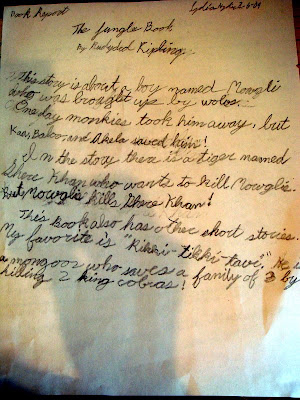 Book Report
The Jungle Book
By Rudyded Kipling
This story is about a boy named Mowgli
who was brought up by wolos.
One day monkies took him away, but
Kaa, Baloo, and Akela saved him!
In the story there is a tiger named
Shere Khan who wants to kill Mowgli.
But Mowgli kills Shere Khan!
This book also has other short stories.
My favorite is "Rikki-tikki-tavi." He is
a mongoos who saves a family of 3 by
killing 2 king cobras!